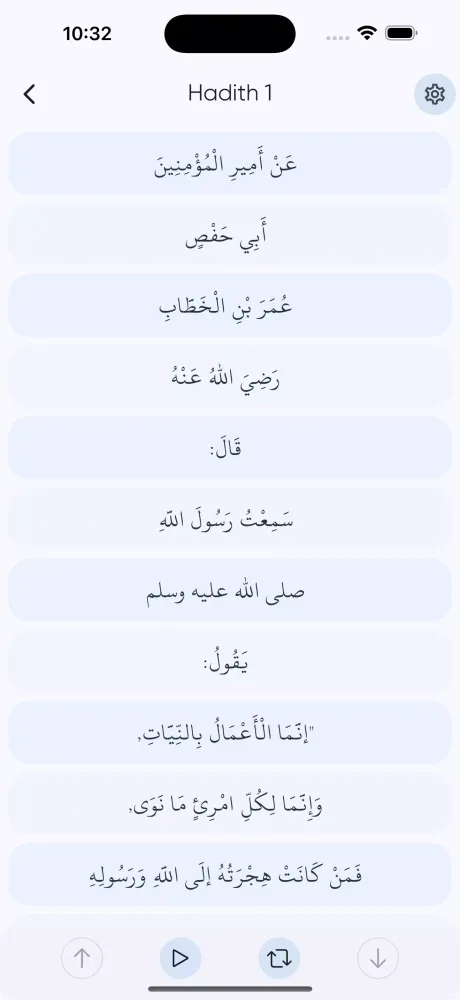 10:32
Hadith 1
عَنْ أَمِيرِ الْمُؤْمِنِينَ
أَبِي حَفْصٍ
عُمَرَ بْنِ الْخَطَّابِ
رَضِيَ اللهُ عَنْهُ
قَالَ:
سَمِعْتُ رَسُولَ اللَّهِ
صلى الله عليه وسلم
يَقُولُ:
"إنَّمَا الْأَعْمَالُ بِالنِّيَّاتِ,
وَإِنَّمَا لِكُلِّ امْرِئٍ مَا نَوَى,
فَمَنْ كَانَتْ هِجْرَتُهُ إلَى اللَّهِ وَرَسُولِهِ